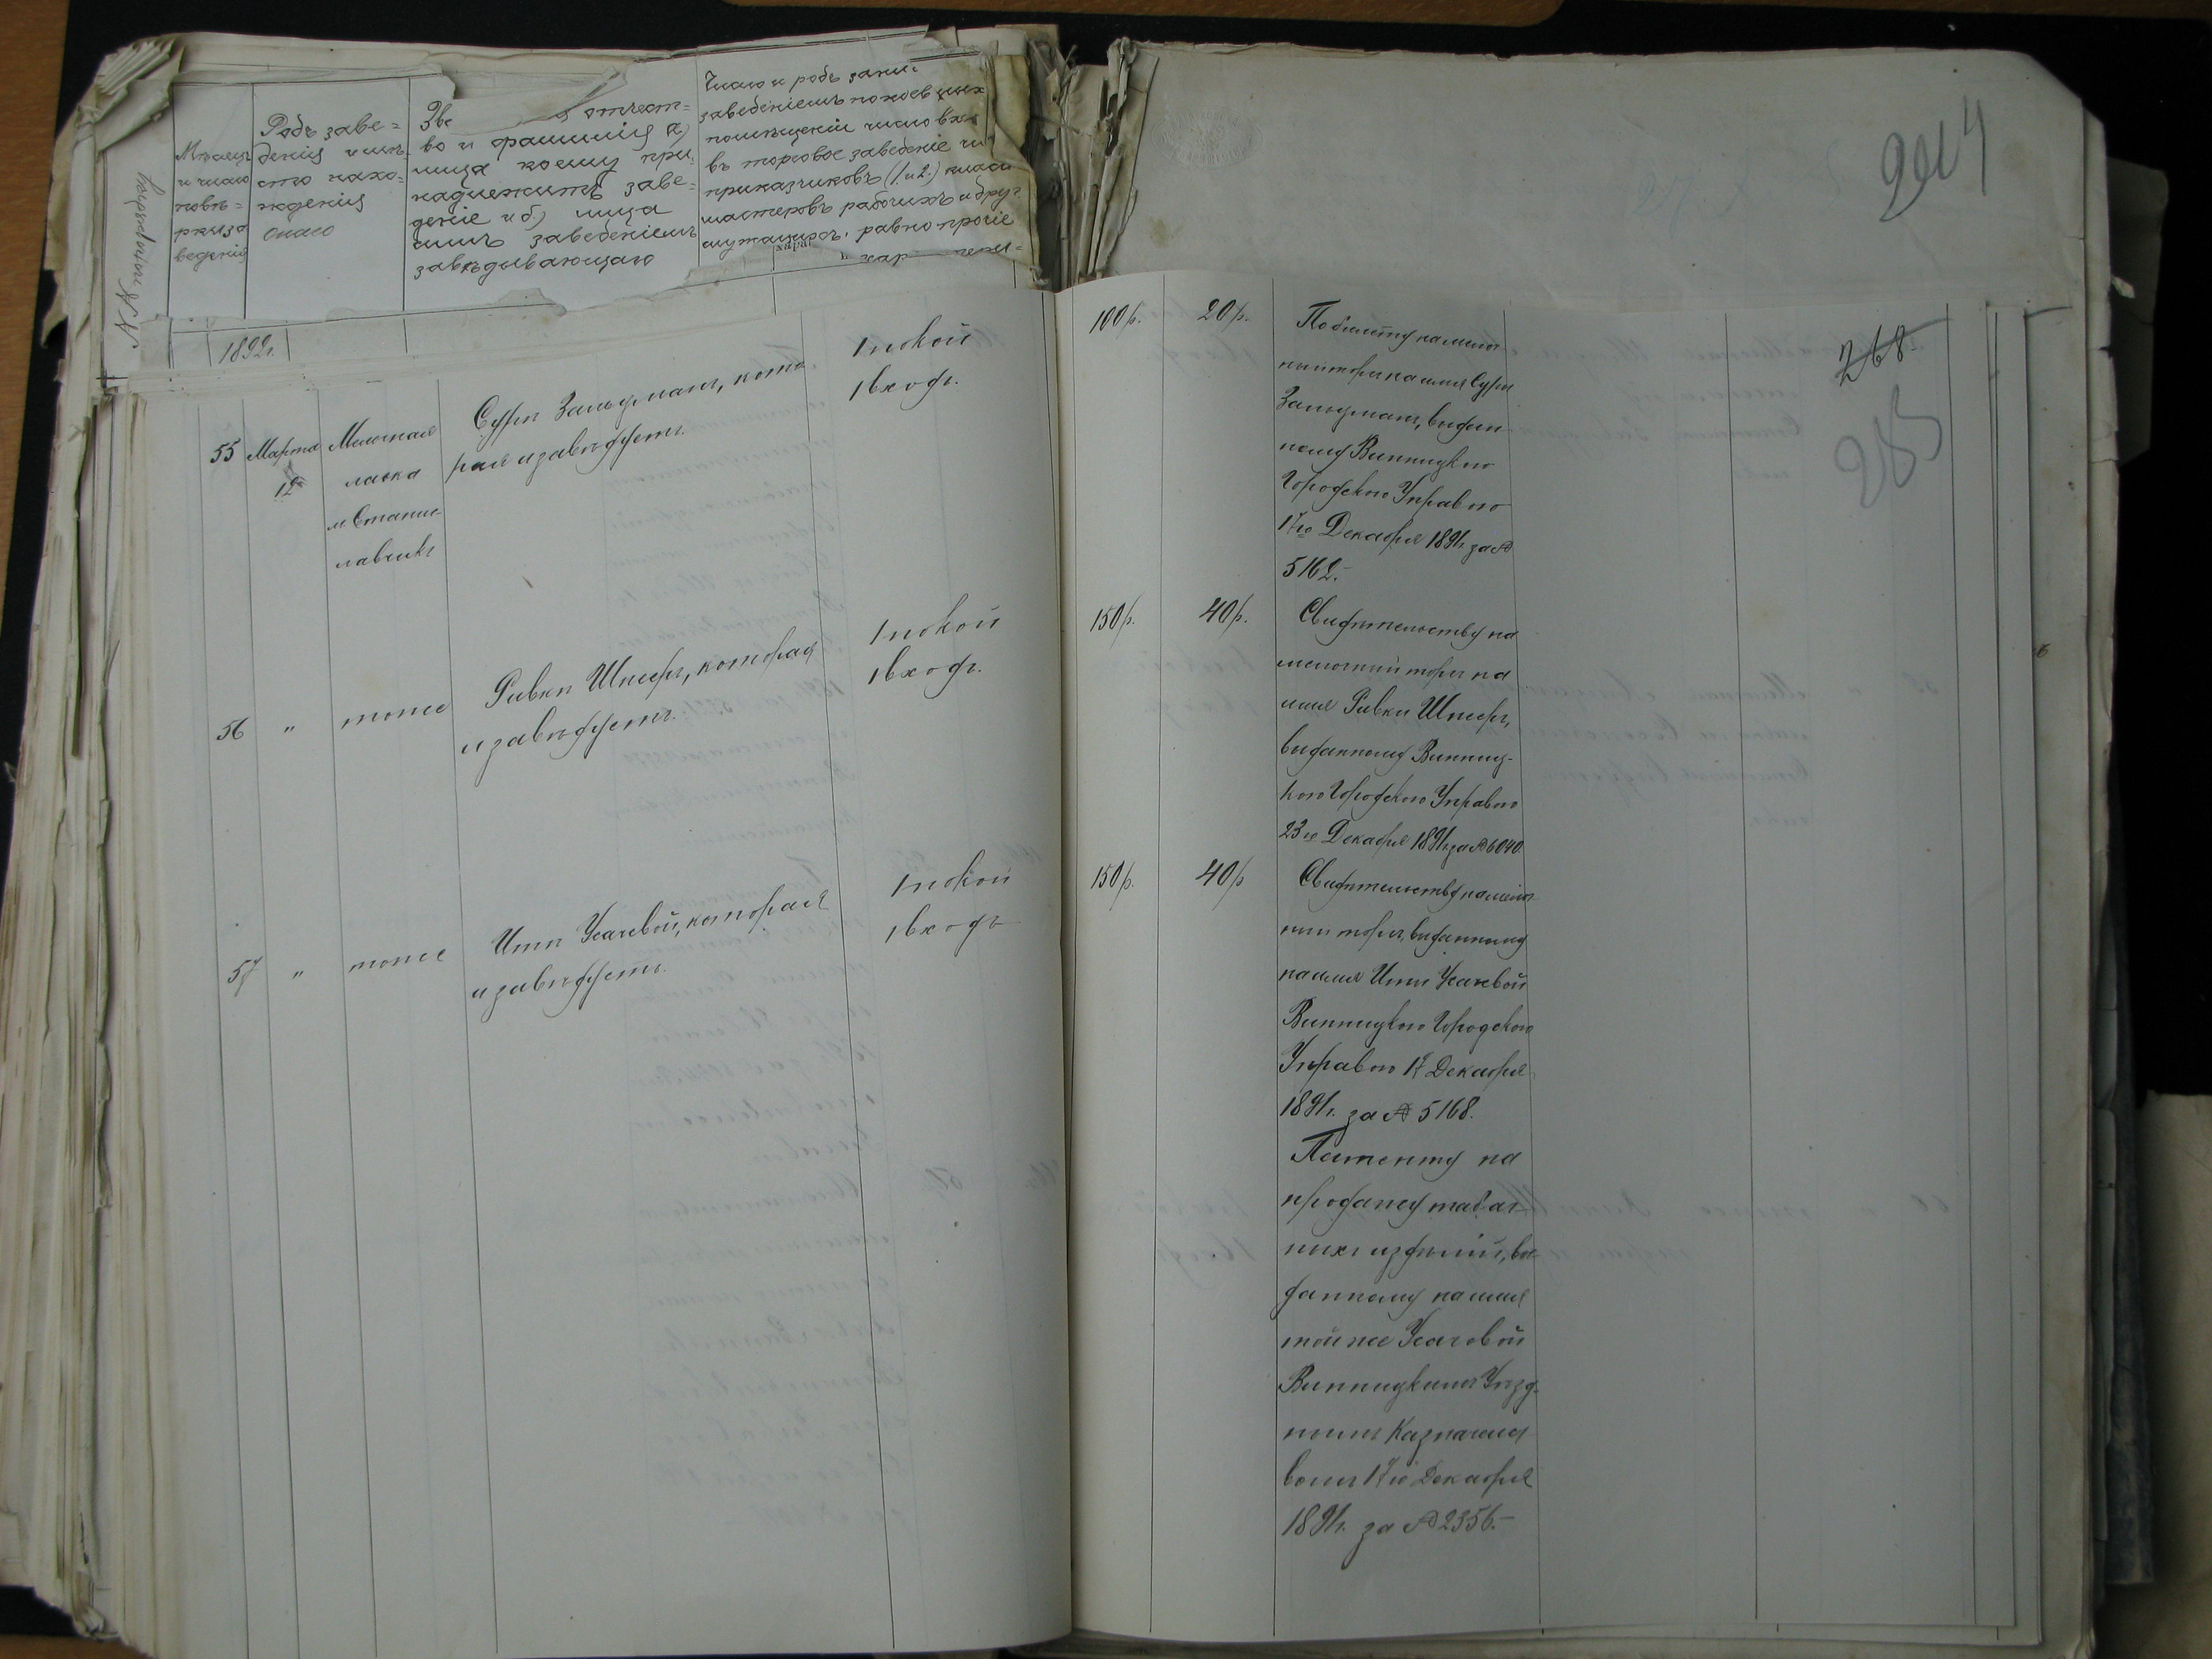 №№ по порядку
Мѣсяцъ
и число
повѣ=
рки за
веденія
Родъ заве=
денія и мѣ
сто нахо=
жденія
онаго
Зве отчест=
во и фамилія а)
лица коему при
надлежитъ заве=
деніе и б) лица
симъ заведеніемъ
завѣдывающаго
Число и родъ заним
заведеніемъ покоев
помѣщеніи число вхо
въ торговое заведеніе
приказчиковъ (1 и 2) класс
мастеровъ рабочихъ и друг.
служащихъ, равно прочіе
харак
1892г.
55 Марта 12
Мелочная
лавка
м. Стани-
лавчикъ
Суры Зальцманъ, кото
рая и завѣдуетъ.
1 покой
1 входъ.
100р. 20р.
По билету на мелоч
ный торгъ на имя Суры
Зальцманъ, выдан
ному Винницкою
Городскою Управою
17го Декабря 1891г. за №
5162.
56 " тоже
Ривки Шпееръ, которая
и завѣдуетъ.
1 покой
1 входъ.
150р. 40р.
Свидѣтельству на
мелочный торгъ на
имя Ривки Шпееръ,
выданному Винниц-
кою Городскою Управою
23го Декабря 1891г. за № 6040.
57 " тоже
Ити Усачевой, которая
и завѣдуетъ.
1 покой
1 входъ
150р. 40р
Свидѣтельству на мелоч
ный торгъ, выданному
на имя Ити Усачевой
Винницкою Городскою
Управою 17 Декабря
1891г. за № 5168.
Патенту на
продажу табач
ныхъ издѣлій, вы
данному на имя
той же Усачевой
Винницкимъ Уѣзд-
нымъ Казначей
вомъ 17го Декабря
1891г. за № 2356.
268
285